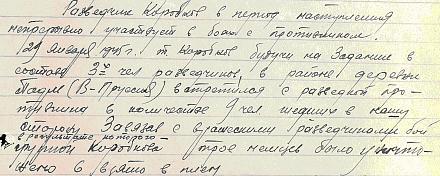 Разведчик Коробков в период наступления
непрерывно участвует в боях с противником.
21 января 1945 г. т. Коробков будучи на Задании в
составе 3х чел разведчиков, в районе деревни
(В-Пруссия) встретился с разведкой про-
тивника в количестве 9 чел. шедших в нашу
сторону Завязав с вражескими разведчиками бой
в результате которого
группой Коробкова трое немцев было уничто-
жено 6 взято в плен